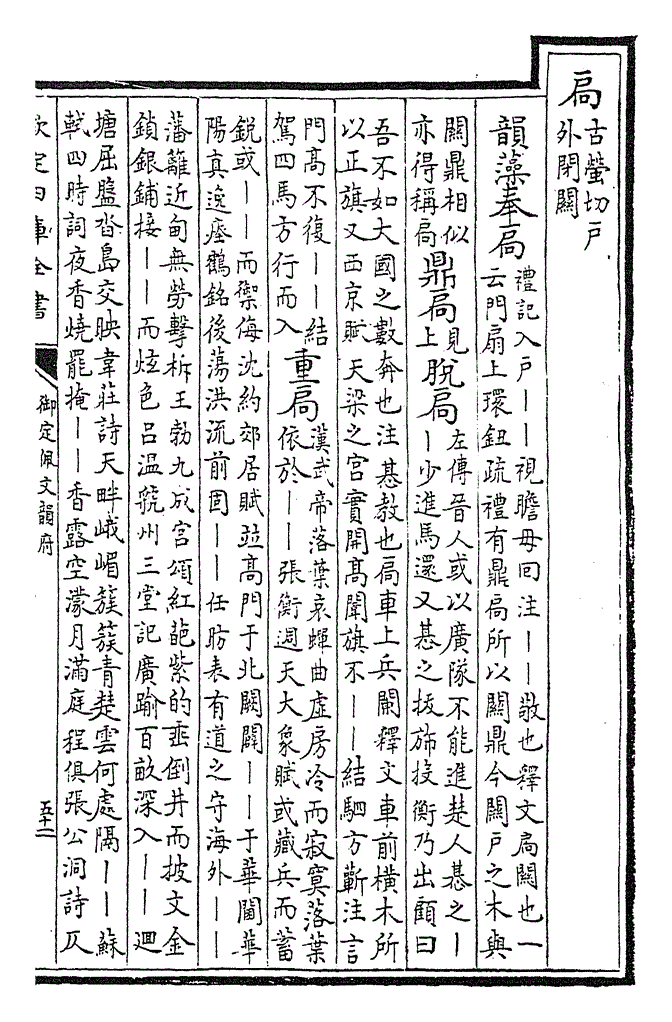 扃古螢切戶
外閉關
韻藻奉扃禮記入戶——視瞻毋回注——敬也釋文扃關也一
云門扇上環鈕疏禮有鼎扃所以關鼎今關戶之木與
關鼎相似
亦得稱扃鼎扃見
上脫扃左傳晉人或以廣隊不能進楚人惎之—
—少進馬還又惎之拔旆投衡乃出顧曰
吾不如大國之數奔也注惎教也扃車上兵闌釋文車前橫木所
以正旗又西京賦天梁之宮實開高闈旗不——結駟方蘄注言
門高不復——結
駕四馬方行而入重扃漢武帝落葉哀蟬曲虛房冷而寂寞落葉
依於——張衡週天大象賦或藏兵而蓄
銳或——而禦侮沈約郊居賦並高門于北闕闢——于華閫華
陽真逸瘞鶴銘後蕩洪流前固——任昉表有道之守海外——
藩籬近甸無勞擊柝王勃九成宮頌紅葩紫的垂倒井而披文金
鎖銀鋪接——而炫色呂溫虢州三堂記廣踰百畝深入——迴
塘屈盤沓島交映韋莊詩天畔峨嵋簇簇青楚雲何處隔——蘇
軾四時詞夜香燒罷掩——香露空濛月滿庭程俱張公洞詩仄
欽定四庫全書
御定佩文韻府
五十二